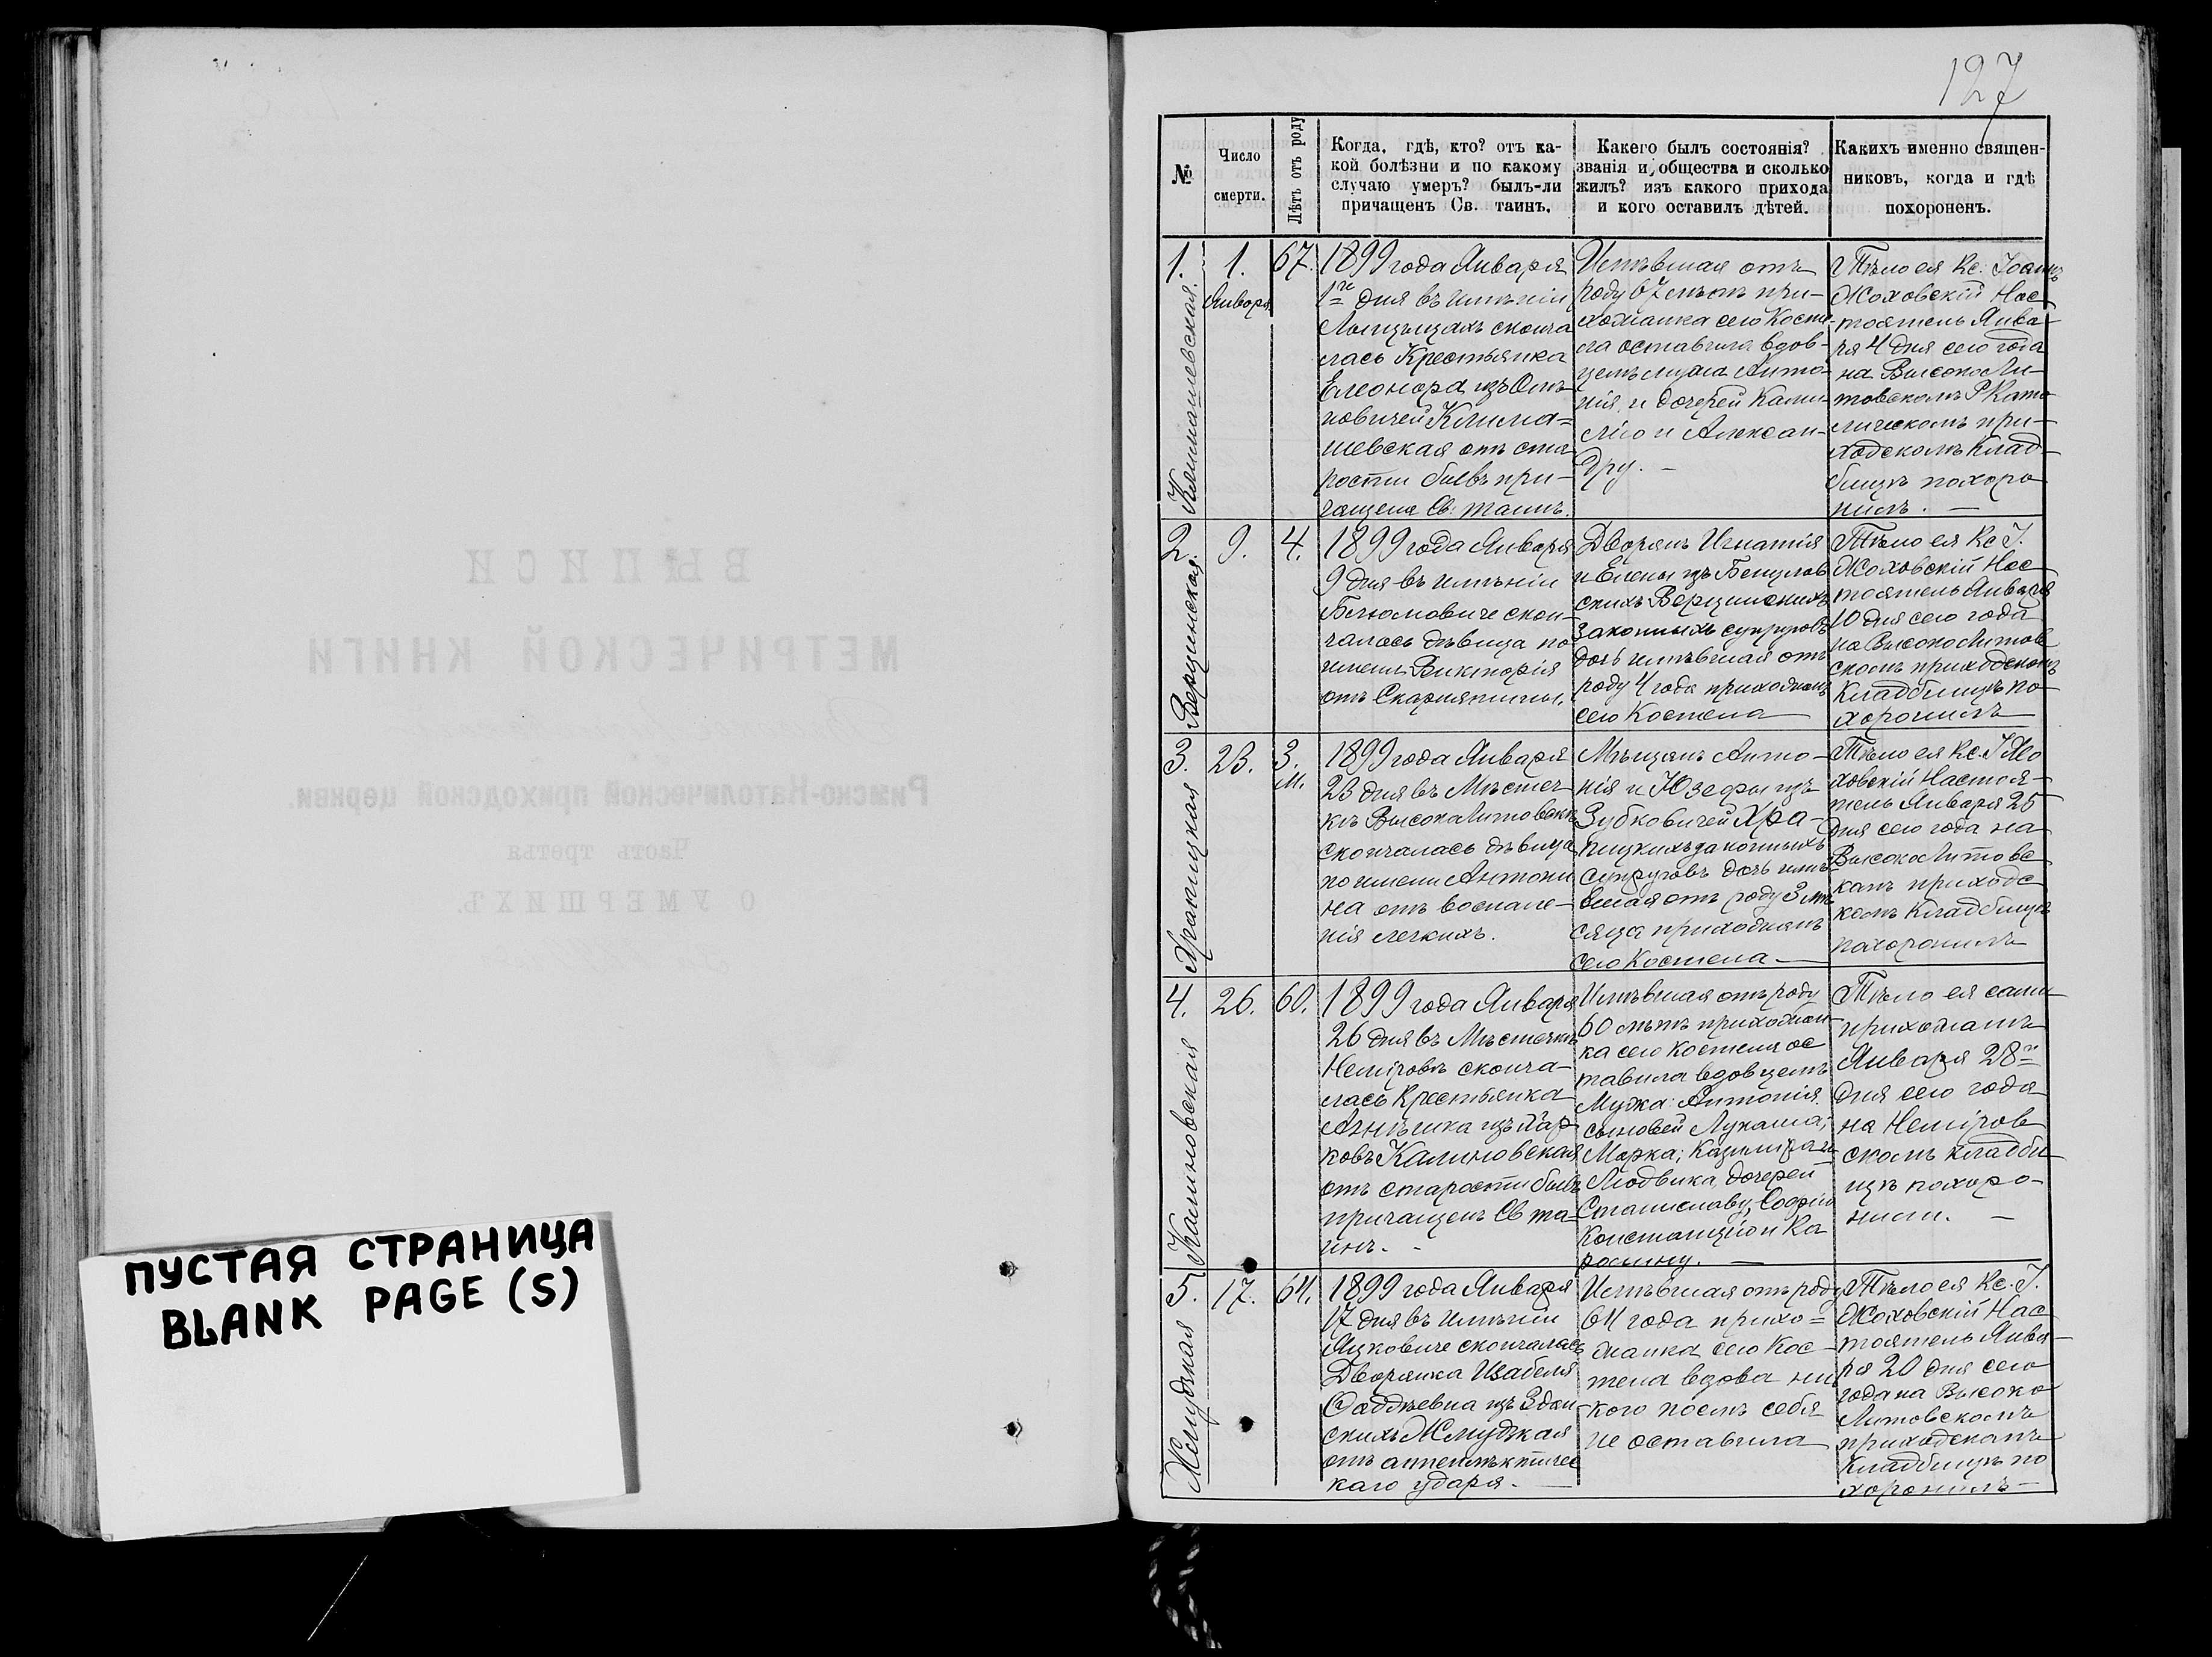 127
№
Число смерти.
Лѣтъ отъ роду
Когда, гдѣ, кто? отъ ка-
кой болѣзни и по какому
случаю умеръ? былъ-ли
причащенъ Св. таинъ.
Какего былъ состоянія?
званія и общества и сколько
жилъ? изъ какого прихода
и кого оставилъ дѣтей.
Какихъ именно священ-
никовъ, когда и гдѣ
похороненъ.
1.
Климашевская.
1.
Января
67.
1899 года Января
1го дня въ имѣніи
сконча
лась Крестьянка
Елеонора изъ
новичей Клима=
шевская отъ ста
рости бывъ при-
чащена Св. таинъ.
Имѣвшая отъ
роду 67 лѣтъ при-
хожанка сего Косте-
ла оставила вдов-
цемъ мужа Анто-
нія, и дочерей Ками-
лію и Алексан-
дру. —
Тѣло ея Кс. Іоаннъ
Жоховскій Нас-
тоятель Янва-
ря 4 дня сего года
на Высоко Ли-
товскомъ Р Като
лическомъ при-
ходскомъ клад-
бищѣ похоро
нилъ. —
2.
Вержинская.
9.
4.
1899 года Января
9 дня въ имѣніи
скон-
чалась дѣвица по
имени Викторія
отъ Скарлятины.
Дворянъ Игнатія
и Елены изъ
скихъ
Законныхъ супруговъ
дочь имѣвшая отъ
роду 4 года прихожанъ
сего Костела
Тѣло ея Кс. І.
Жоховскій Нас-
тоятель Января
10 дня сего года
на Высоко Литов
скомъ приходскомъ
Кладбищѣ по-
хоронилъ
3.
Храпицкая
23.
3.
м.
1899 года Января
23 дня въ Мѣстеч-
кѣ Высоко Литовскѣ
скончалась дѣвица
по имени Антони
на отъ воспале-
нія легкихъ.
Мѣщанъ Анто-
нія и Юзефы изъ
Зубковичей Хра-
пицкихъ законныхъ
супруговъ дочь имѣ
вшая отъ роду 3 мѣ
сяца прихожанъ
сего Костела —
Тѣло ея Кс. І Жо
ховскій Настоя-
тель Января 25
дня сего года на
Высоко Литовс
комъ приходс
комъ Кладбищѣ
похоронилъ
4.
Калиновская
26.
60.
1899 года Января
26 дня въ Мѣстечкѣ
Немировѣ сконча-
лась Крестьянка
Агнѣшка изъ
ковъ Калиновская
отъ старости бывъ
причащенъ Св та-
инъ. -
Имѣвшая отъ роду
60 лѣтъ прихожан-
ка сего Костела ос
тавила вдовцемъ
Мужа Антонія
сыновей Лукаша,
Марка, Казимира и
Людвика дочерей
Станиславу, Софію
Констанцію и Ка
ролину. —
Тѣло ея сами
прихожане
Января 28го
дня сего года
на Неміров
скомъ кладби
щѣ похоро-
нили. —
5.
Жмудзкая
17.
64.
1899 года Января
17 дня въ имѣніи
Яцковиче скончалась
Дворянка Изабеля
Фаддѣевна изъ Здан-
скихъ Жмудзкая
отъ
каго удара. —
Имѣвшая отъ роду
64 года прихо=
жанка сего Кос-
тела вдова ни
кого послѣ себя
не оставила
Тѣло ея Кс. І.
Жоховскій Нас
тоятель Янва-
ря 20 дня сего
года на Высоко
Литовскомъ
приходскомъ
Кладбищѣ по
хоронилъ —
ПУСТАЯ СТРАНИЦА
BLANK PAGE (S)
ВЫПИСИ
МЕТРИЧЕСКОЙ КНИГИ
Римско-Католической приходской церкви.
Часть третья
О УМЕРШИХЪ.